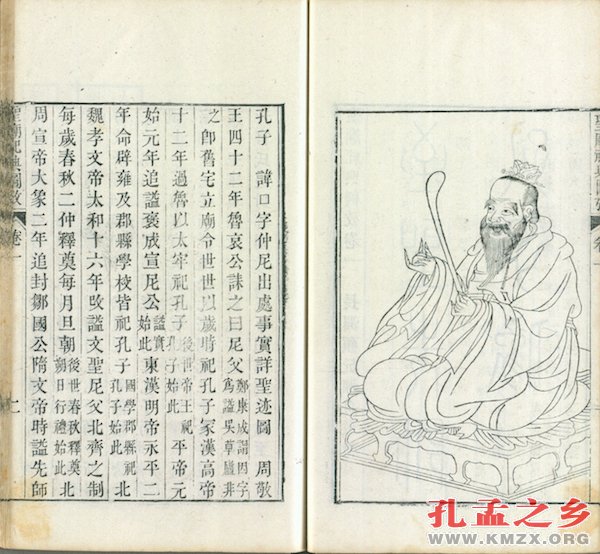 孔子諱口字仲尼出處事實詳聖迹圖 周敬
王四十二年魯哀公誄之曰尼父鄭康成謂因字爲謚吳草廬非
之卽舊宅立廟令世世以歲時祀孔子家漢高帝
十二年過魯以太牢祀孔子後世帝王祀孔子始此平帝元
始元年追謚褒成宣尼公謚實始此東漢明帝永平二
年命辟雍及郡縣學校皆祀孔子國學郡縣祀孔子始此北
魏孝文帝太和十六年改謚文聖尼父北齊之制
每歲春秋二仲釋奠每月旦朝後世春秋釋奠朔日行禮始此北
周宣帝大象二年追封鄒國公隋文帝時謚先師
聖廟祀典圖攷 卷一
孔孟之乡
WWW.KMZX.ORG